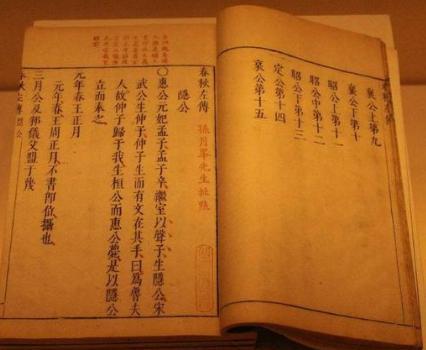 襄公上第九
襄公下第十
昭公上第十一
昭公中第十二
昭公下第十三
定公第十四
哀公第十五
春秋左傳
孫月峯先生批點
隱公
〇惠公元妃孟子孟子卒繼室以聲子生隱公宋
武公生仲子仲子生而有文在其手曰為魯夫
人故仲子歸于我生桓公而惠公薨是以隱公
立而奉之
元年春王正月
元年春王周正月不書即位攝也
三月公及邾儀父盟于蔑
春秋左傳 隱公